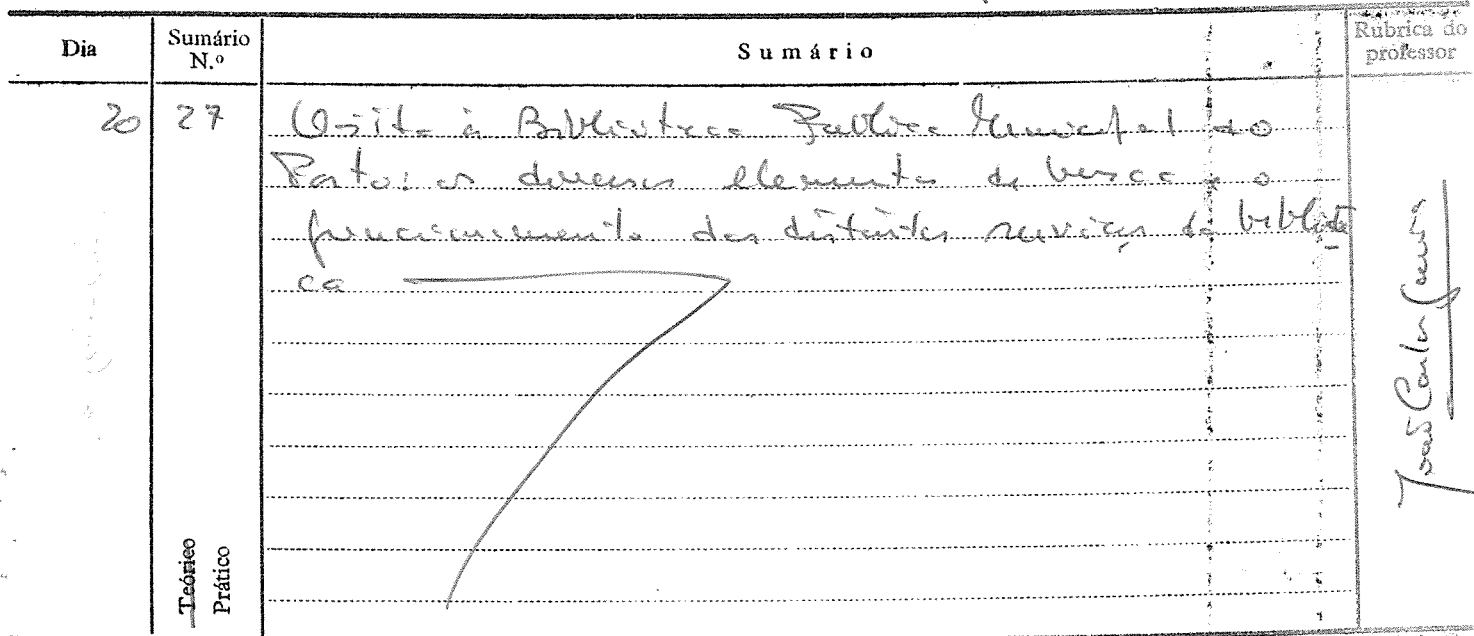 Dia
Sumário
N.º
Sumário
Rúbrica do
professor
20
27
Visita à Biblioteca Publica Municipal do
Porto: os diversos elementos de busca e o
funcionamento dos distintos serviços da bibliote
ca
Teórico
Prático
João Carlos